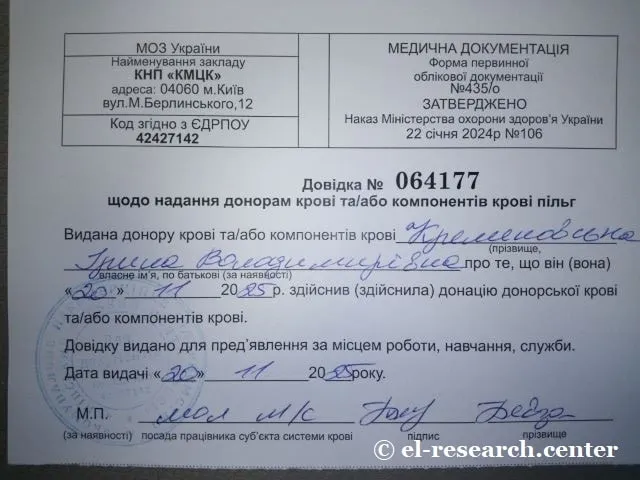 МОЗ України
Найменування закладу
КНП «КМЦК»
адреса: 04060 м.Київ
вул.М.Берлинського,12
Код згідно з ЄДРПОУ
42427142
МЕДИЧНА ДОКУМЕНТАЦІЯ
Форма первинної
облікової документації
№435/о
ЗАТВЕРДЖЕНО
Наказ Міністерства охорони здоров'я України
22 січня 2024р №106
Довідка № 064177
щодо надання донорам крові та/або компонентів крові пільг
Видана донору крові та/або компонентів крові Кремановська
(прізвище,
Ірина Володимирівна про те, що він (вона)
власне ім'я, по батькові (за наявності)
«20» 11 2025р. здійснив (здійснила) донацію донорської крові
та/або компонентів крові.
Довідку видано для пред'явлення за місцем роботи, навчання, служби.
Дата видачі «20» 11 2025року.
М.П. мол м/с
(за наявності) посада працівника суб'єкта системи крові підпис прізвище
© el-research.center